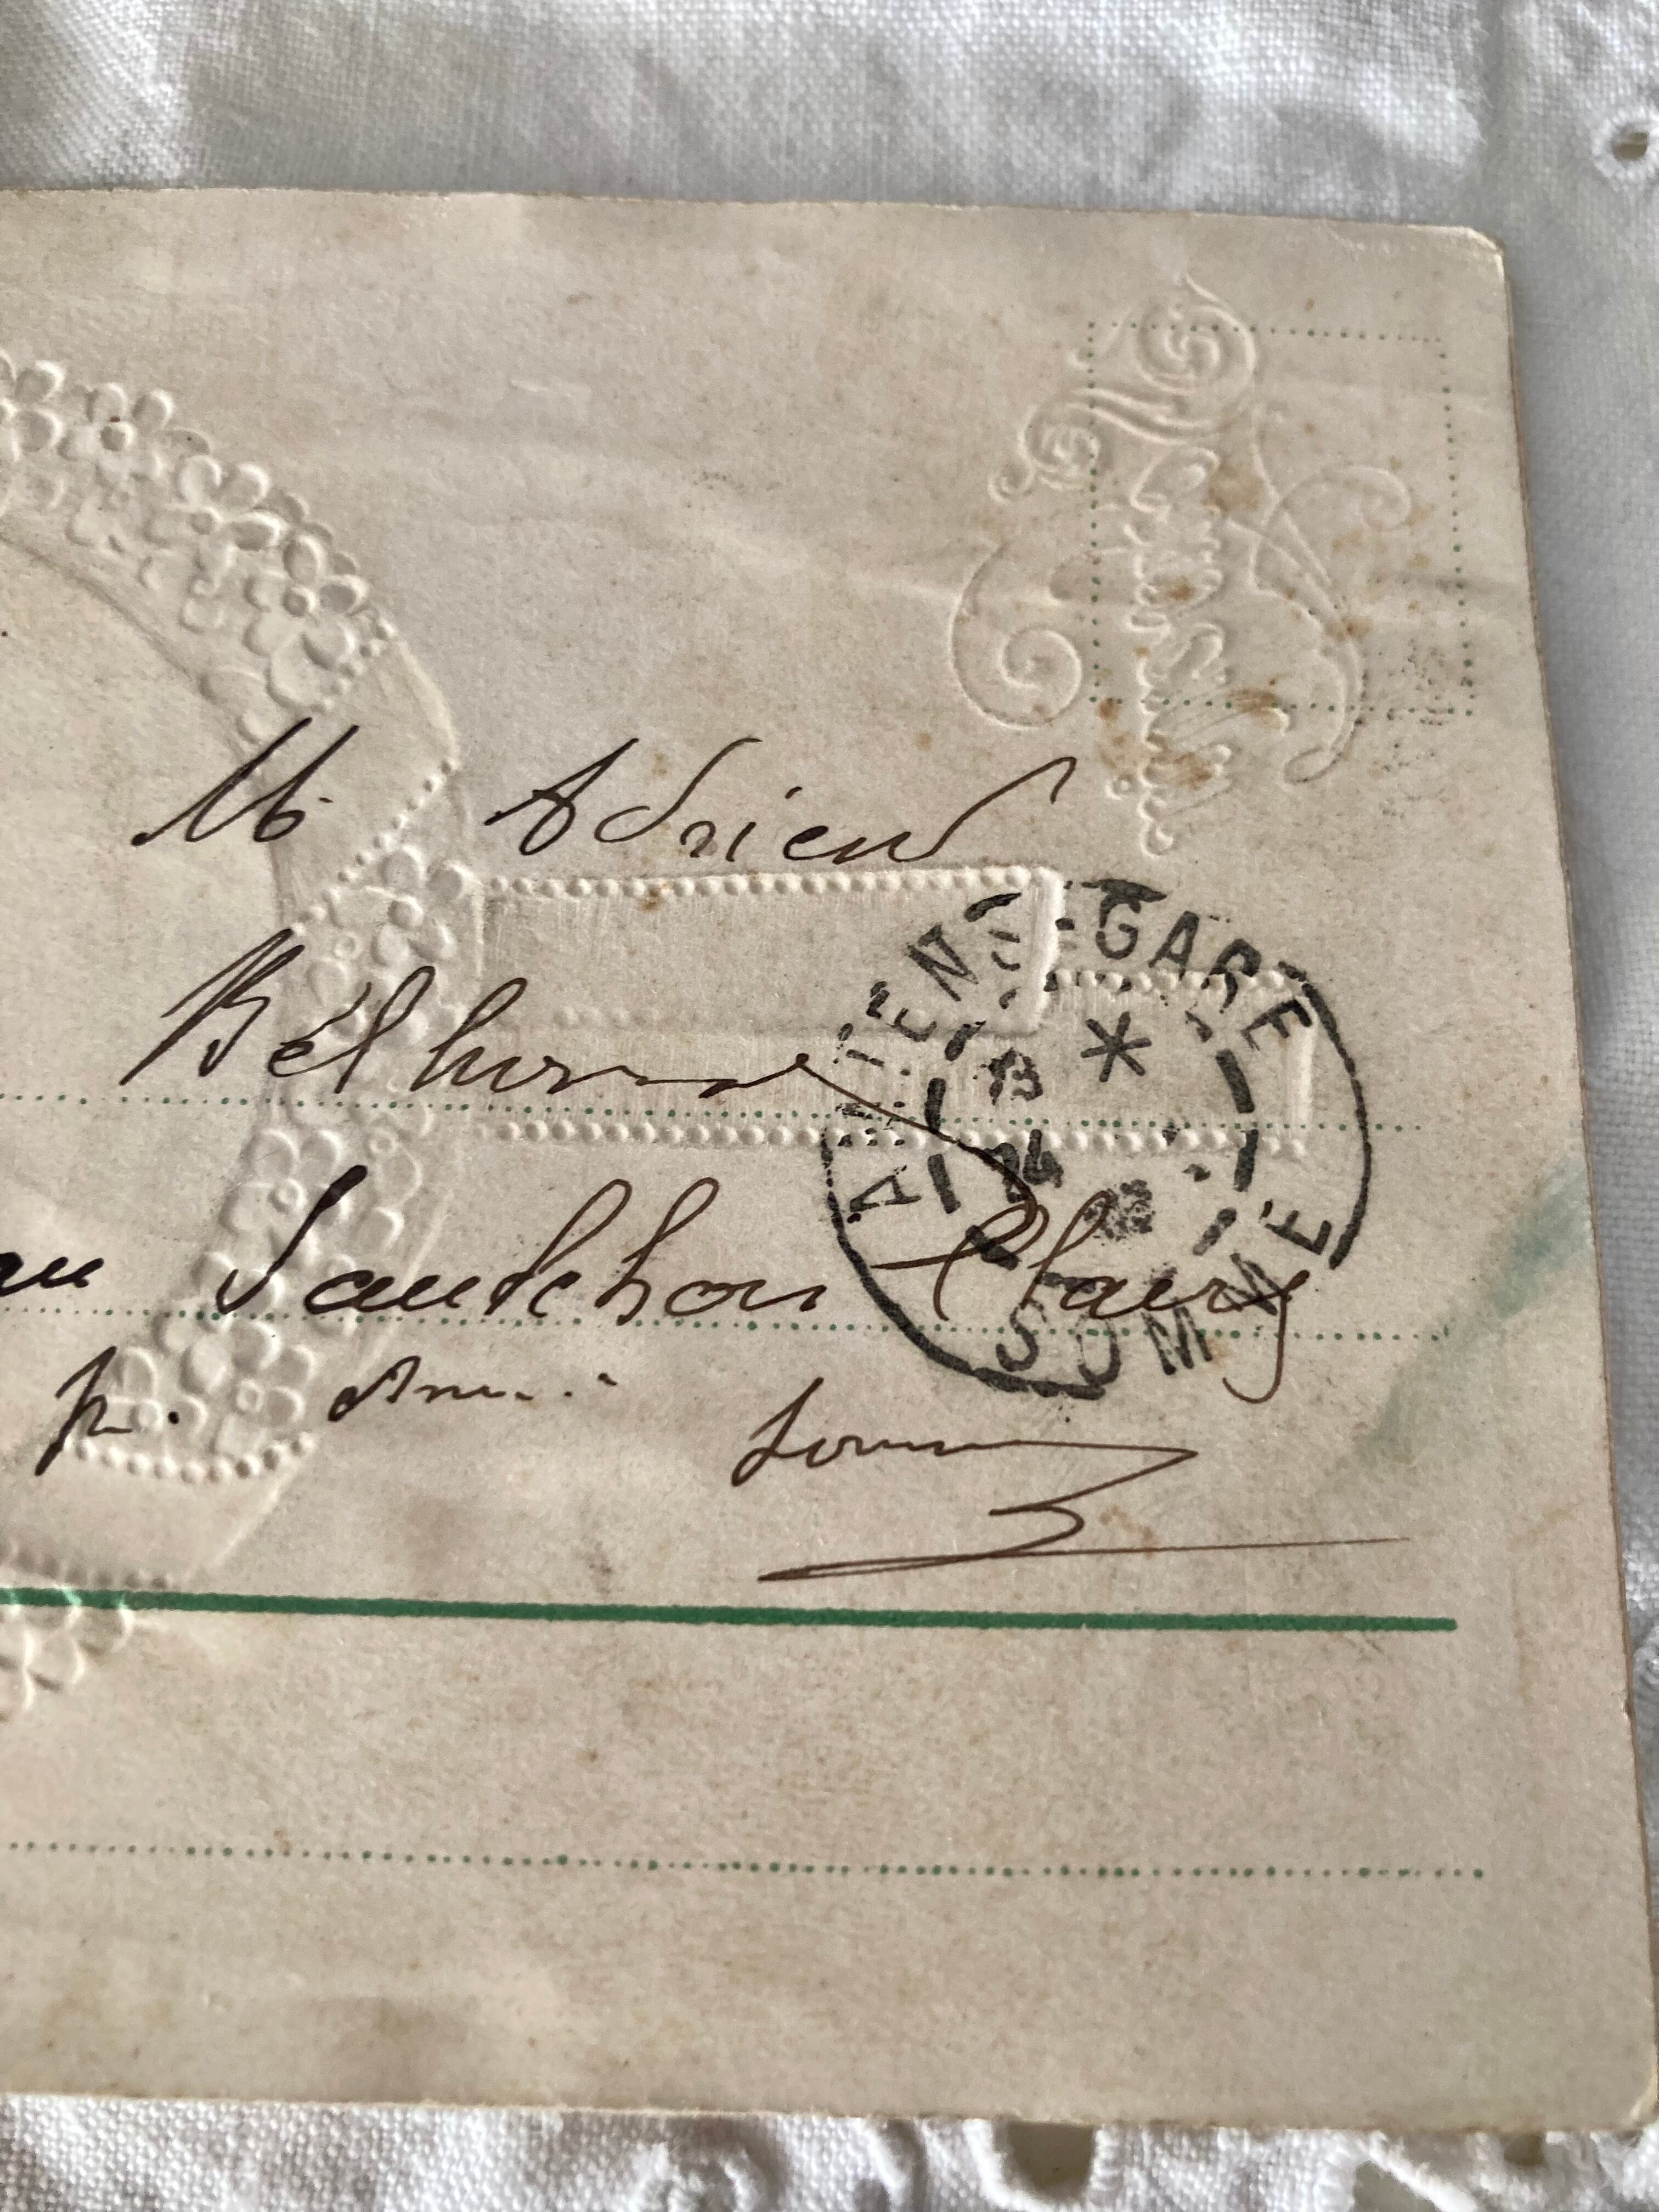 M. Adrien
Belhomme
au Saulchoi Clairy
p. Amiens
Somme
AMIENS-GARE
*
13
24
SOMME